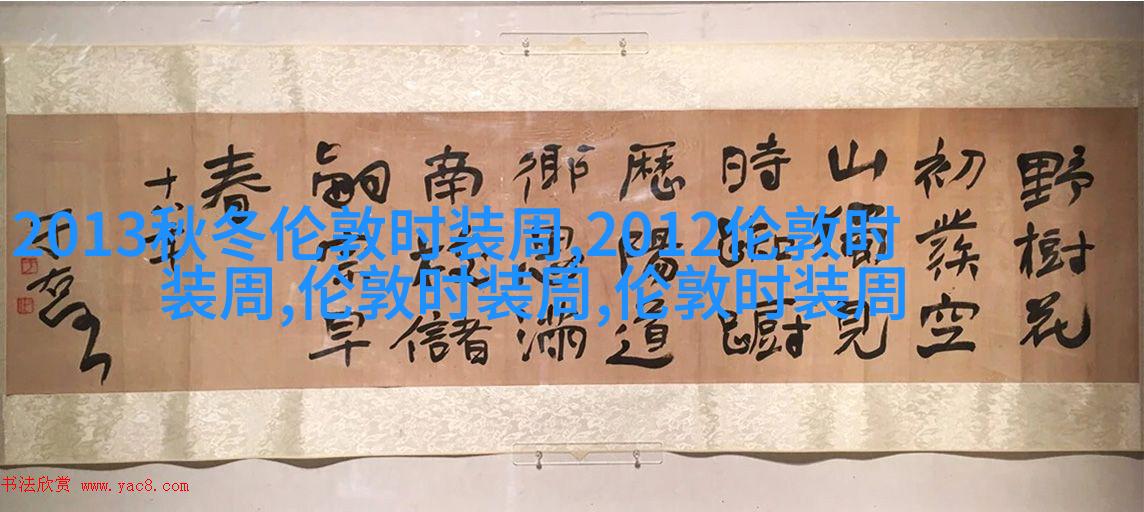 2013秋冬伦敦时装周,2012伦敦时
装周,伦敦时装周,伦敦时装周
野樹花
初發空
山獨見
時踟躕
歷陽道
鄉思滿
南枝儲
嗣宗早
春
书法欣赏 www.yac8.com